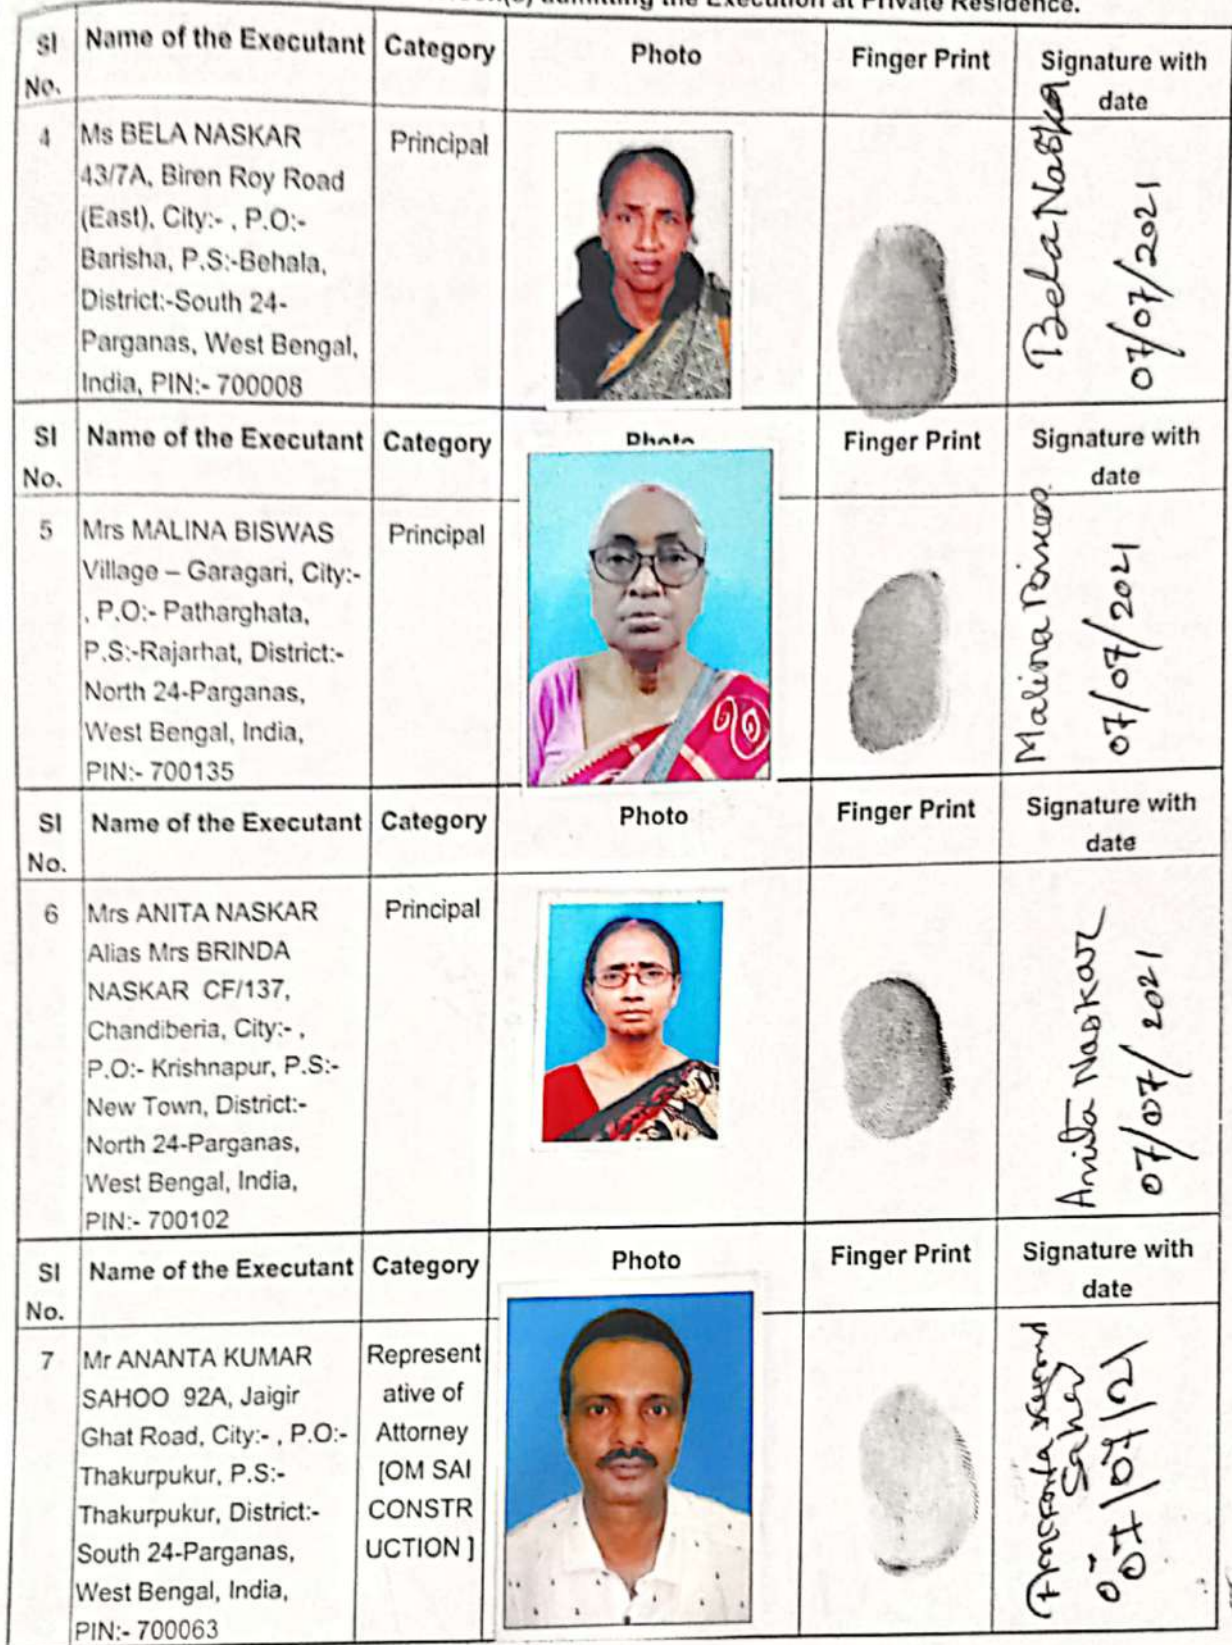 admitting the Execution at Private Residence.
Sl No. Name of the Executant Category Photo Finger Print Signature with date
4 Ms BELA NASKAR Principal
43/7A, Biren Roy Road
(East), City:- , P.O:-
Barisha, P.S:-Behala,
District:-South 24-
Parganas, West Bengal,
India, PIN:- 700008
Bela Naskar
07/07/2021
Sl No. Name of the Executant Category Photo Finger Print Signature with date
5 Mrs MALINA BISWAS Principal
Village – Garagari, City:-
, P.O:- Patharghata,
P.S:-Rajarhat, District:-
North 24-Parganas,
West Bengal, India,
PIN:- 700135
Malina Biswas
07/07/2021
Sl No. Name of the Executant Category Photo Finger Print Signature with date
6 Mrs ANITA NASKAR Principal
Alias Mrs BRINDA
NASKAR CF/137,
Chandiberia, City:- ,
P.O:- Krishnapur, P.S:-
New Town, District:-
North 24-Parganas,
West Bengal, India,
PIN:- 700102
Anita Naskar
07/07/2021
Sl No. Name of the Executant Category Photo Finger Print Signature with date
7 Mr ANANTA KUMAR
SAHOO 92A, Jaigir
Ghat Road, City:- , P.O:-
Thakurpukur, P.S:-
Thakurpukur, District:-
South 24-Parganas,
West Bengal, India,
PIN:- 700063
Represent
ative of
Attorney
[OM SAI
CONSTR
UCTION ]
07/07/21